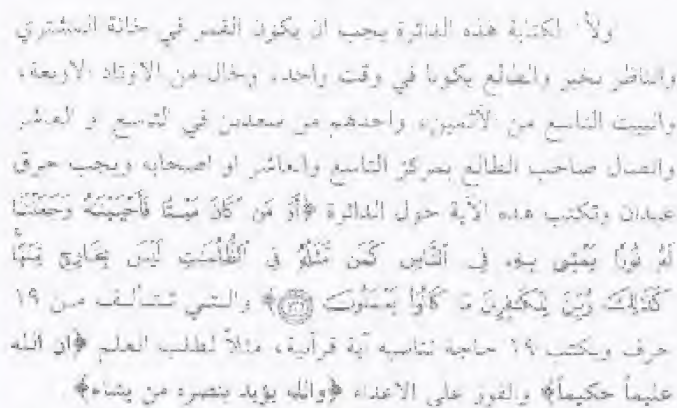 اولاً: لكتابة هذه الدائرة يجب ان يكون القمر في خانة المشتري
والناظر بخير والطالع يكونا في وقت واحد، وخال من الاوتاد الاربعة،
والبيت التاسع من الآثمين، واحدهم من سعدين في التسع و العاشر
واتصال صاحب الطالع بمركز التاسع والعاشر او اصحابه ويجب حرق
عيدان وتكتب هذه الآية حول الدائرة ﴿أَوَ مَن كَانَ مَيْتًا فَأَحْيَيْنَاهُ وَجَعَلْنَا
لَهُ نُورًا يَمْشِي بِهِ فِي النَّاسِ كَمَن مَّثَلُهُ فِي الظُّلُمَاتِ لَيْسَ بِخَارِجٍ مِّنْهَا
كَذَلِكَ زُيِّنَ لِلْكَافِرِينَ مَا كَانُوا يَعْمَلُونَ﴾ والتي تتألف من ١٩
حرف ويكتب ١٩ حاجة تناسبه آية قرآنية، مثلاً لطلب العلم ﴿ان الله
عليماً حكيماً﴾ والفوز على الاعداء ﴿والله يؤيد بنصره من يشاء﴾